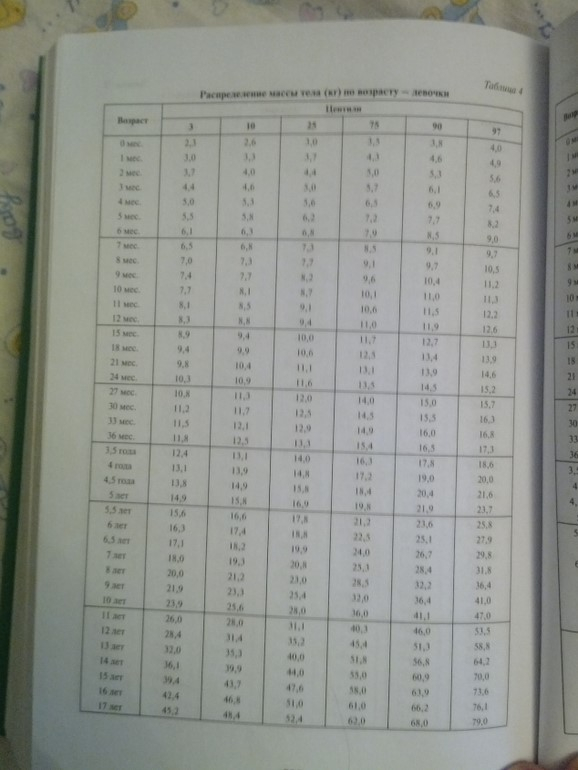 Таблица 4
Распределение массы тела (кг) по возрасту — девочки
Возраст Центили
3 10 25 75 90 97
0 мес. 2,3 2,6 3,0 3,5 3,8 4,0
1 мес. 3,0 3,3 3,7 4,3 4,6 4,9
2 мес. 3,7 4,0 4,4 5,0 5,3 5,6
3 мес. 4,4 4,6 5,0 5,7 6,1 6,5
4 мес. 5,0 5,3 5,6 6,5 6,9 7,4
5 мес. 5,5 5,8 6,2 7,2 7,7 8,2
6 мес. 6,1 6,3 6,8 7,9 8,5 9,0
7 мес. 6,5 6,8 7,3 8,5 9,1 9,7
8 мес. 7,0 7,3 7,7 9,1 9,7 10,5
9 мес. 7,4 7,7 8,2 9,6 10,4 11,2
10 мес. 7,7 8,1 8,7 10,1 11,0 11,3
11 мес. 8,1 8,5 9,1 10,6 11,5 12,2
12 мес. 8,3 8,8 9,4 11,0 11,9 12,6
15 мес. 8,9 9,4 10,0 11,7 12,7 13,3
18 мес. 9,4 9,9 10,6 12,5 13,4 13,9
21 мес. 9,8 10,4 11,1 13,1 13,9 14,6
24 мес. 10,3 10,9 11,6 13,5 14,5 15,2
27 мес. 10,8 11,3 12,0 14,0 15,0 15,7
30 мес. 11,2 11,7 12,5 14,5 15,5 16,3
33 мес. 11,5 12,1 12,9 14,9 16,0 16,8
36 мес. 11,8 12,5 13,3 15,4 16,5 17,3
3,5 года 12,4 13,1 14,0 16,3 17,8 18,6
4 года 13,1 13,9 14,8 17,2 19,0 20,0
4,5 года 13,8 14,9 15,8 18,4 20,4 21,6
5 лет 14,9 15,8 16,9 19,8 21,9 23,7
5,5 лет 15,6 16,6 17,8 21,2 23,6 25,8
6 лет 16,3 17,4 18,8 22,5 25,1 27,9
6,5 лет 17,1 18,2 19,9 24,0 26,7 29,8
7 лет 18,0 19,3 20,8 25,3 28,4 31,8
8 лет 20,0 21,2 23,0 28,5 32,2 36,4
9 лет 21,9 23,3 25,4 32,0 36,4 41,0
10 лет 23,9 25,6 28,0 36,0 41,1 47,0
11 лет 26,0 28,0 31,1 40,3 46,0 53,5
12 лет 28,4 31,4 35,2 45,4 51,3 58,8
13 лет 32,0 35,3 40,0 51,8 56,8 64,2
14 лет 36,1 39,9 44,0 55,0 60,9 70,0
15 лет 39,4 43,7 47,6 58,0 63,9 73,6
16 лет 42,4 46,8 51,0 61,0 66,2 76,1
17 лет 45,2 48,4 52,4 62,0 68,0 79,0